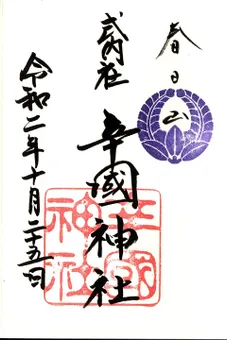 春日山
式内社
辛國神社
令和二年十月二十五日